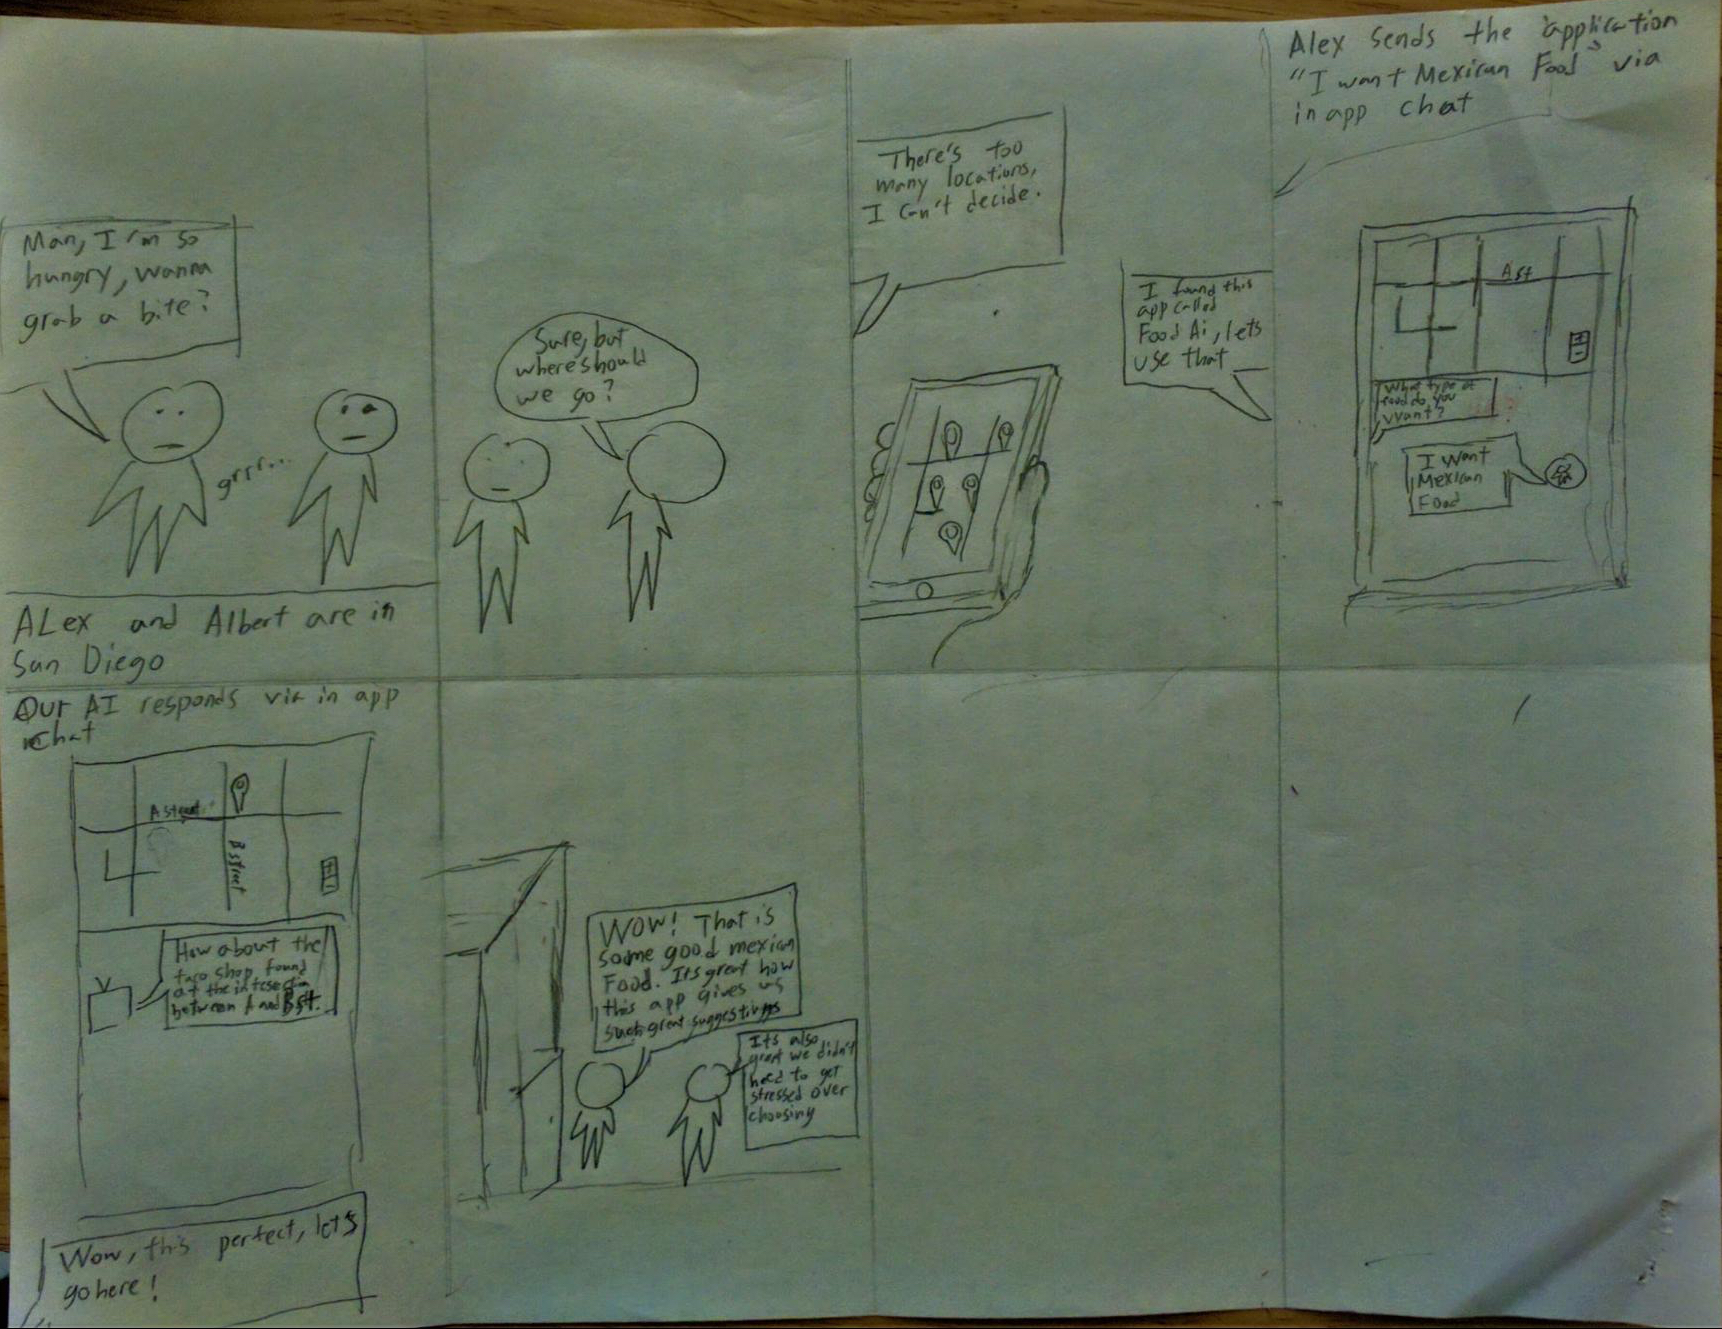 Man, I'm so
hungry, wanna
grab a bite?
grrr...
ALex and Albert are in
San Diego
Sure, but
where should
we go?
There's too
many locations,
I can't decide.
I found this
app called
Food Ai, lets
use that
Alex sends the application
"I want Mexican Food" via
in app chat
A st
What type of
food do you
want?
I want
Mexican
Food
Our AI responds via in app
chat
A street
B street
How about the
taco shop found
at the intesection
between A and B st.
Wow, this perfect, lets
go here!
WOW! That is
some good mexican
Food. Its great how
this app gives us
such great suggestions
Its also
great we didn't
need to get
stressed over
choosing